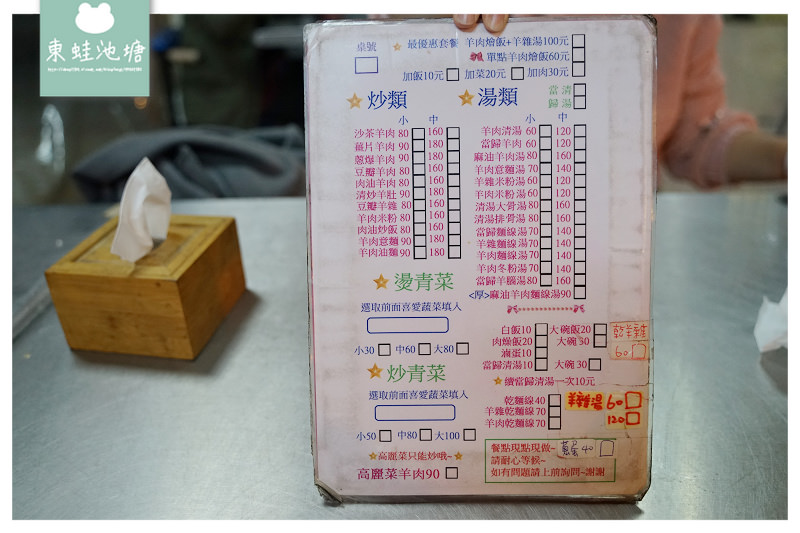 東蛙池塘
桌號
最優惠套餐 羊肉燴飯+羊雜湯100元
單點羊肉燴飯60元
加飯10元 加菜20元 加肉30元
炒類
小 中
沙茶羊肉 80 160
薑片羊肉 90 180
蔥爆羊肉 90 180
豆瓣羊肉 80 160
肉油羊肉 80 160
清炒羊肚 90 180
豆瓣羊雜 80 160
羊肉米粉 80 160
肉油炒飯 80 160
羊肉意麵 90 180
羊肉油麵 90 180
湯類
當 清
歸 湯
小 中
羊肉清湯 60 120
當歸羊肉 60 120
麻油羊肉湯 80 160
羊肉意麵湯 70 140
羊雜米粉湯 60 120
羊肉米粉湯 60 120
清湯大骨湯 80 160
清湯排骨湯 80 160
當歸麵線湯 70 140
羊雜麵線湯 70 140
羊肉麵線湯 70 140
羊肉冬粉湯 70 140
當歸羊腦湯 80 160
<厚>麻油羊肉麵線湯90
燙青菜
選取前面喜愛蔬菜填入
小30 中60 大80
炒青菜
選取前面喜愛蔬菜填入
小50 中80 大100
高麗菜只能炒哦~
高麗菜羊肉90
白飯10 大碗飯20
肉燥飯20 大碗30
滷蛋10
當歸清湯10 大碗30
續當歸清湯一次10元
乾羊雜
60
乾麵線40
羊雜乾麵線70
羊肉乾麵線70
羊雜湯 60
120
餐點現點現做~
請耐心等候~
如有問題請上前詢問~謝謝
蔥蛋 40